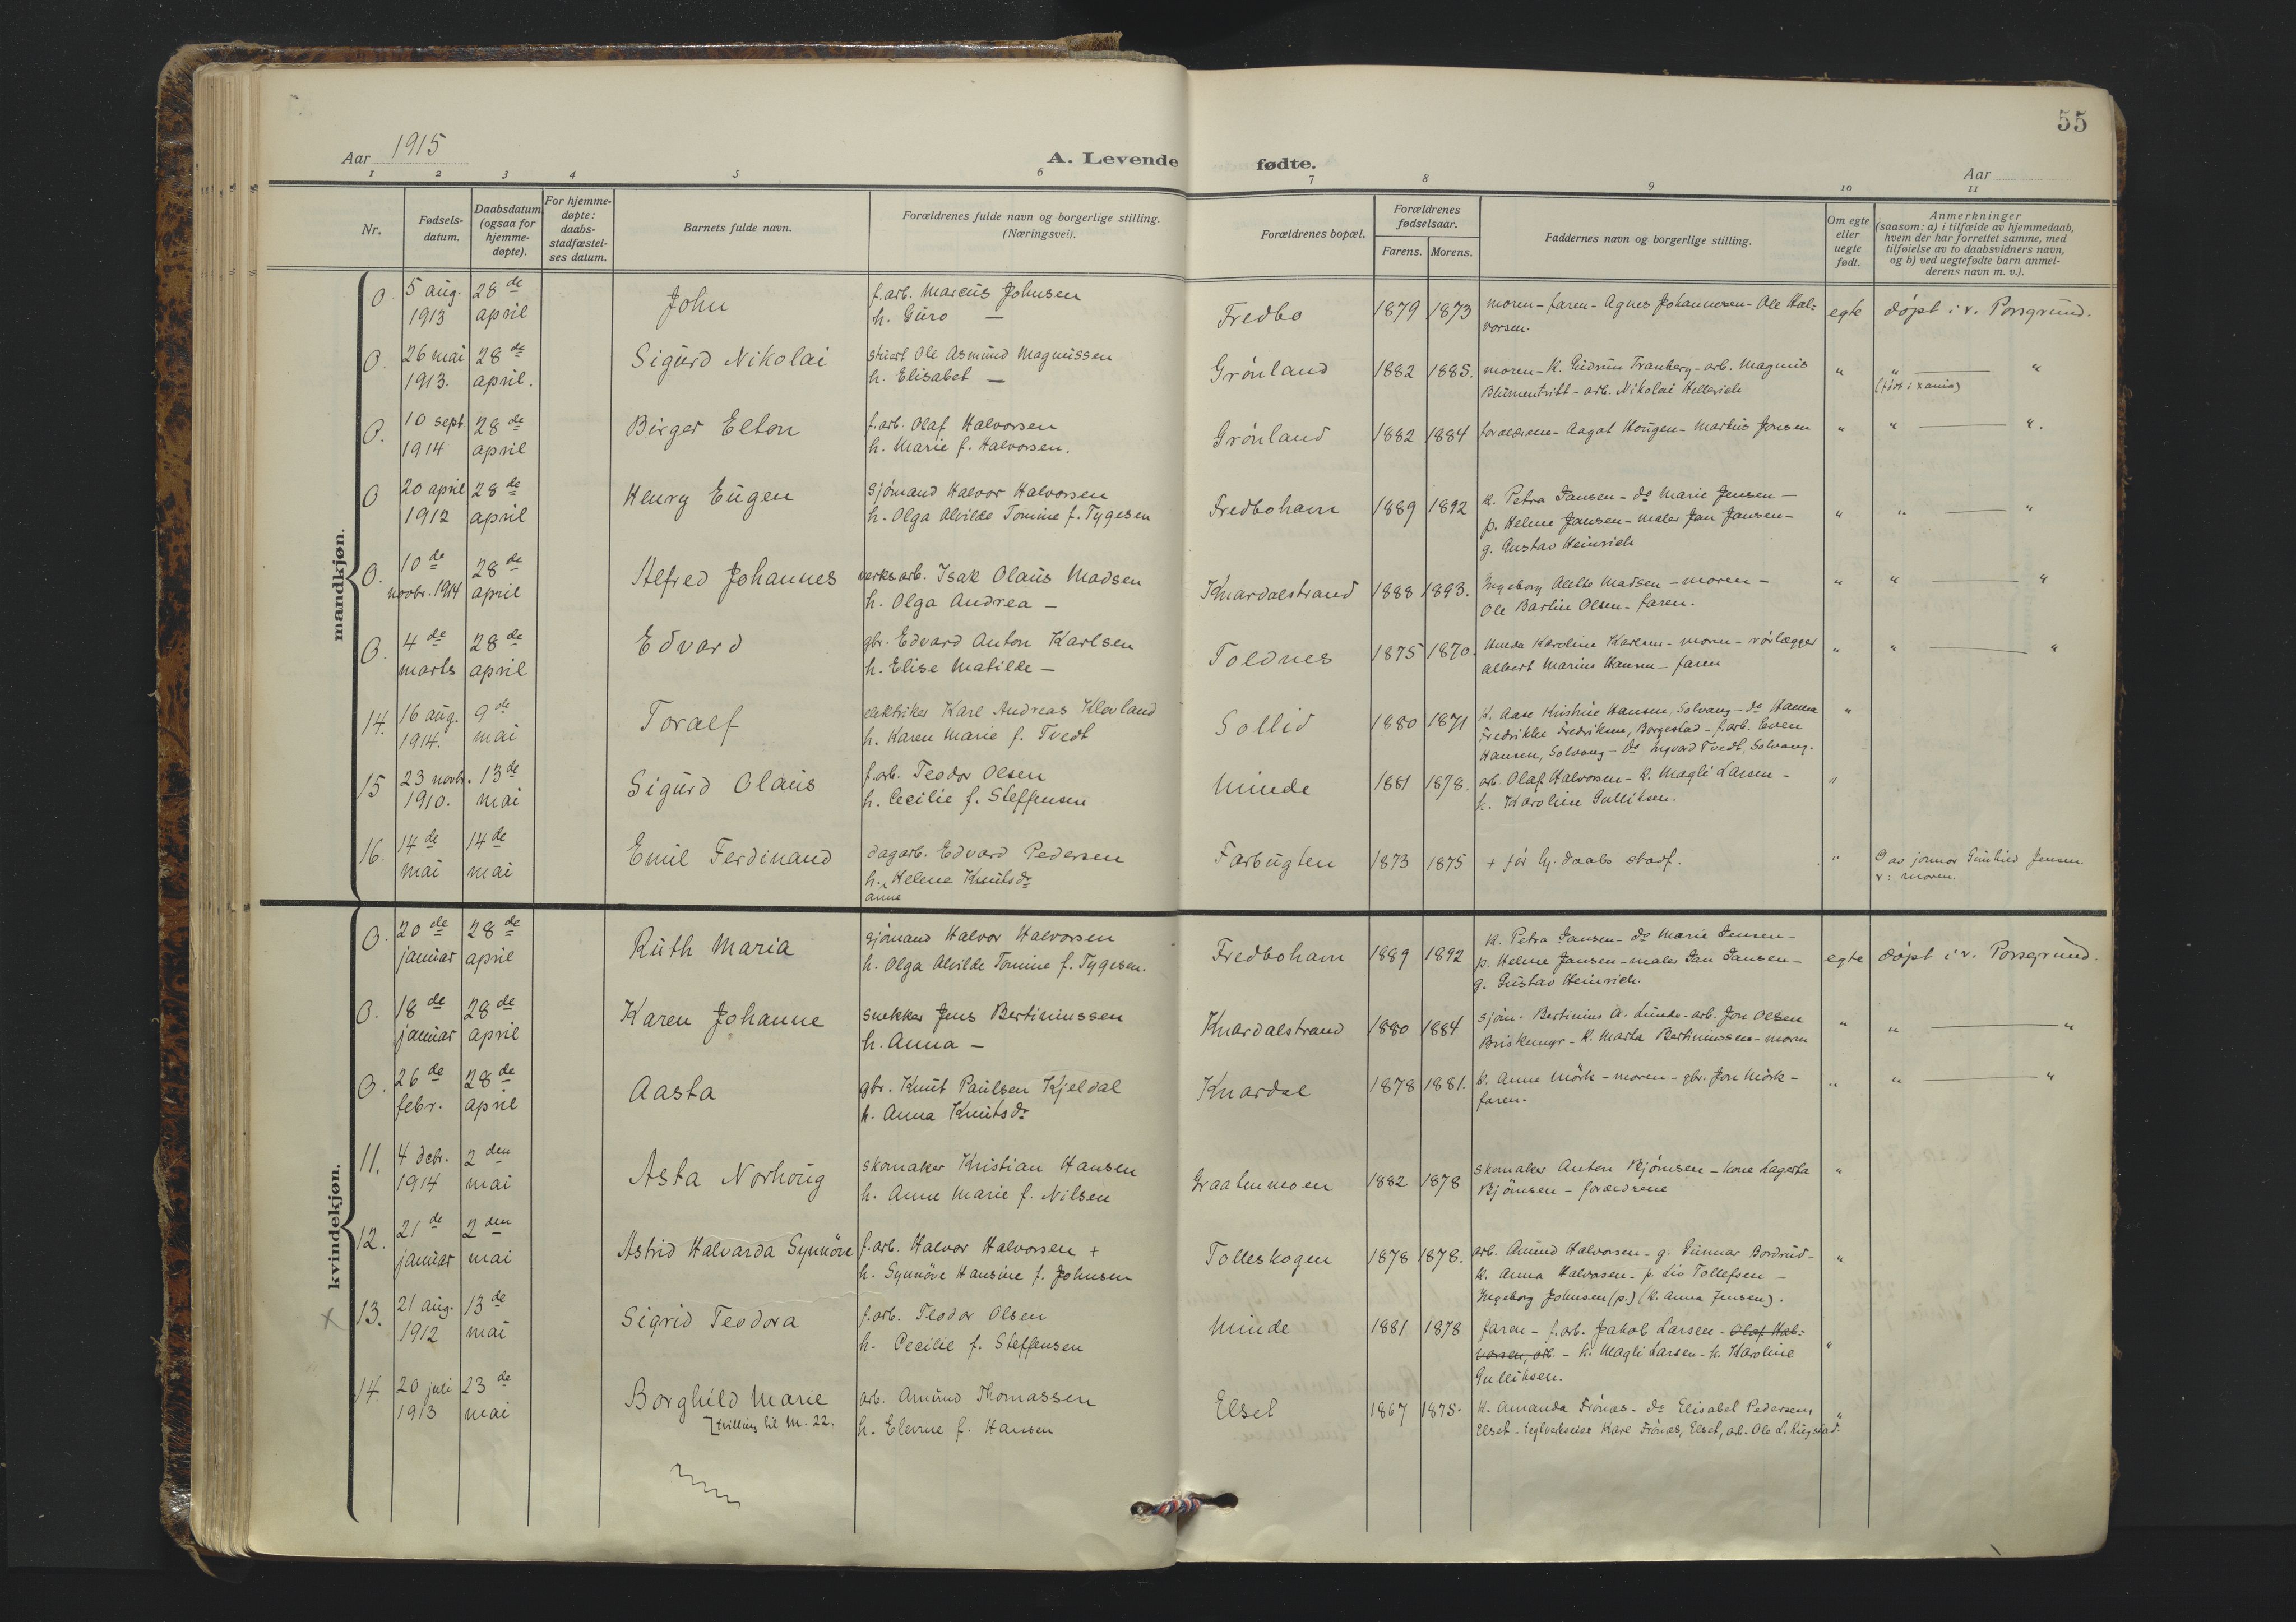 55
Aar 1915
A. Levende fødte.
Aar
1 2 3 4 5 6 7 8 9 10 11
Nr.
Fødsels-
datum.
Daabsdatum
(ogsaa for
hjemme-
døpte).
For hjemme-
døpte:
daabs-
stadfæstel-
ses datum.
Barnets fulde navn.
Forældrenes fulde navn og borgerlige stilling.
(Næringsvei).
Forældrenes bopæl.
Forældrenes
fødselsaar.
Farens. Morens.
Faddernes navn og borgerlige stilling.
Om egte
eller
uegte
født.
Anmerkninger
(saasom: a) i tilfælde av hjemmedaab,
hvem der har forrettet samme, med
tilføielse av to daabsvidners navn,
og b) ved uegtefødte barn anmel-
derens navn m. v.).
mandkjøn.
0. 5 aug. 28de John f.arb. Marcus Johnsen Fredbo 1879 1873 moren - faren - Agnes Johannesen - Ole Hal- egte døpt i v. Porsgrund.
1913 april h. Guro — vorsen.
0. 26 mai 28de Sigurd Nikolai stuert Ole Asmund Magnussen Grönland 1882 1885. moren - k. Gudrun Tranberg - arb. Magnus " " — "
1913. april. h. Elisabet — Blumentritt - arb. Nikolai Hellerich
0. 10 sept. 28de Birger Elton f.arb. Olaf Halvorsen Grönland 1882 1884 forældrene - Aagot Haugen - Martius Jonsen " " — ".
1914 april h. Marie f. Halvorsen.
0 20 april 28de Henry Eugen Sjömand Halvor Halvorsen Fredbohavn 1889 1892 k. Petra Jansen - do Marie Jensen — " " — "
1912 april h. Olga Alvilde Tomine f. Tygesen p. Helene Jansen - maler Jan Jansen -
g. Gustav Heinrich
0. 10de 28de Alfred Johannes verksarb. Isak Olaus Madsen Knardalstrand 1888 1893. Ingeborg Madsen - moren - " " — "
novbr. 1914 april h. Olga Andrea — Ole Bartin Olsen - faren.
0. 4de 28de Edvard gbr. Edvard Anton Karlsen Toldnes 1875 1870. Karoline Karlsen - moren - rörlægger " " — "
marts april h. Elise Matilde — Albert Marius Hansen - faren
14. 16 aug. 9de Toralf elektriker Karl Andreas Klevland Sollid 1880 1871 k. Aase Kristine Hansen, Solvang - do Hanna "
1914. mai h. Karen Marie f. Tvedt Fredrikke Fredriksen, Borgestad - f.arb. Even
Hansen, Solvang - do Ingvard Tvedt, Solvang.
15 23 novbr. 13de Sigurd Olaus f.arb. Teodor Olsen Minde 1881 1878. arb. Olaf Halvorsen - k. Magli Larsen - "
1910. mai h. Cecilie f. Steffensen h. Karoline Gulliksen.
16. 14de 14de Emil Ferdinand dagarb. Edvard Pedersen Farbugten 1873 1875 + før hj. daabs stadf. " av jormor Gunhild Jensen
mai mai h. Helene Knutsdr v: moren.
Anne
kvindekjøn.
0. 20de 28de Ruth Maria Sjömand Halvor Halvorsen Fredbohavn 1889 1892 k. Petra Jansen - do Marie Jensen - egte døpt i v. Porsgrund.
januar april h. Olga Alvilde Tomine f. Tygesen. p. Helene Jansen - maler Jan Jansen -
g. Gustav Heinrich.
0. 18de 28de Karen Johanne Snekker Jens Bertiniussen Knardalstrand 1880 1884 sjöm. Bertinius A. Lunde - arb. Jon Olsen " " — "
januar april h. Anna — Briskemyr - k. Marta Bertiniussen - moren
0. 26de 28de Aasta gbr. Knut Paulsen Kjeldal Knardal 1878 1881. k. Anne Mörk - moren - gbr. Jon Mörk - " " — "
febr. april h. Anna Knutsdr faren.
11. 4 debr. 2den Asta Norhoug Skomaker Kristian Hansen Graatenmoen 1882 1878 Skomaker Anton Björnsen - kone Lagerta "
1914 mai h. Anne Marie f. Nilsen Björnsen - forældrene
12. 21de 2den Astrid Halvarda Synnöve f.arb. Halvor Halvorsen + Tolleskogen 1878 1878. arb. Amund Halvorsen - g. Gunnar Bordrud - "
januar mai h. Synnöve Hansine f. Johnsen k. Anna Halvorsen - p. Liv Tollefsen -
Ingeborg Johnsen (p.) (k. Anna Jensen).
x 13. 21 aug. 13de Sigrid Teodora f.arb. Teodor Olsen Minde 1881 1878 faren - f.arb. Jakob Larsen - Olaf Hal-
1912 mai h. Cecilie f. Steffensen vorsen, arb. - k. Magli Larsen - h. Karoline "
Gulliksen.
14. 20 juli 23de Borghild Marie arb. Amund Thomassen Elset 1867 1875. k. Amanda Frönæs - do Elisabet Pedersen, "
1913 mai [tvilling til M. 22. h. Elevine f. Hansen Elset - teglverkseier Karl Frönæs, Elset, arb. Ole L. Rugstad.